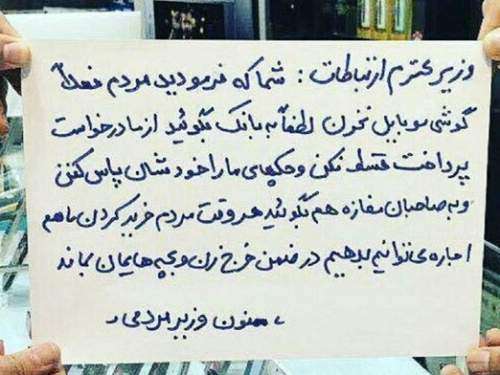 وزیر محترم ارتباطات : شما که فرمودید مردم فعلاً
گوشی موبایل نخرن لطفاً به بانک بگوئید از ما درخواست
پرداخت قسط نکن و چکهای ما را خودشان پاس کنن
و به صاحبان مغازه هم بگوئید هر وقت مردم خرید کردن ما هم
اجاره می توانیم بدهیم در ضمن خرج زن و بچه هایمان بماند
، ممنون وزیر مردمی ،